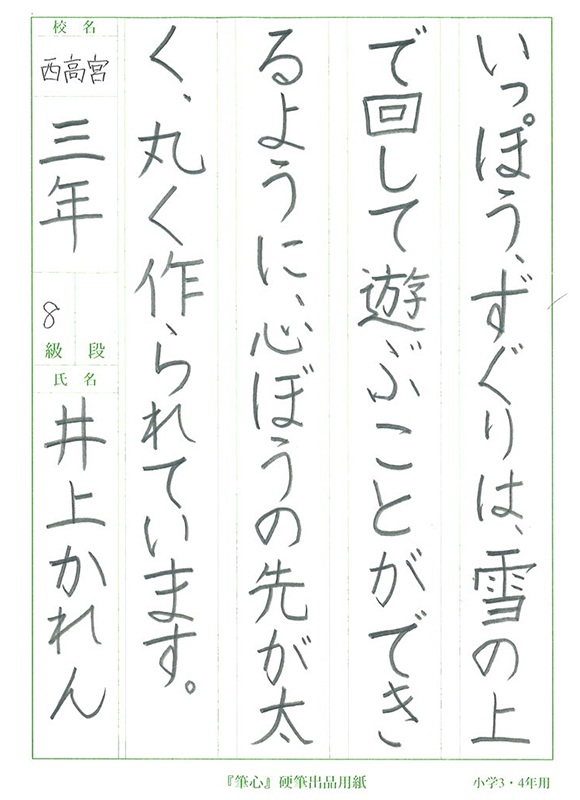 いっぽう、ずぐりは、雪の上
で回して遊ぶことができ
るように、心ぼうの先が太
く、丸く作られています。
校名
西高宮
三年
8
級 段
氏名
井上かれん
『筆心』硬筆出品用紙
小学3・4年用